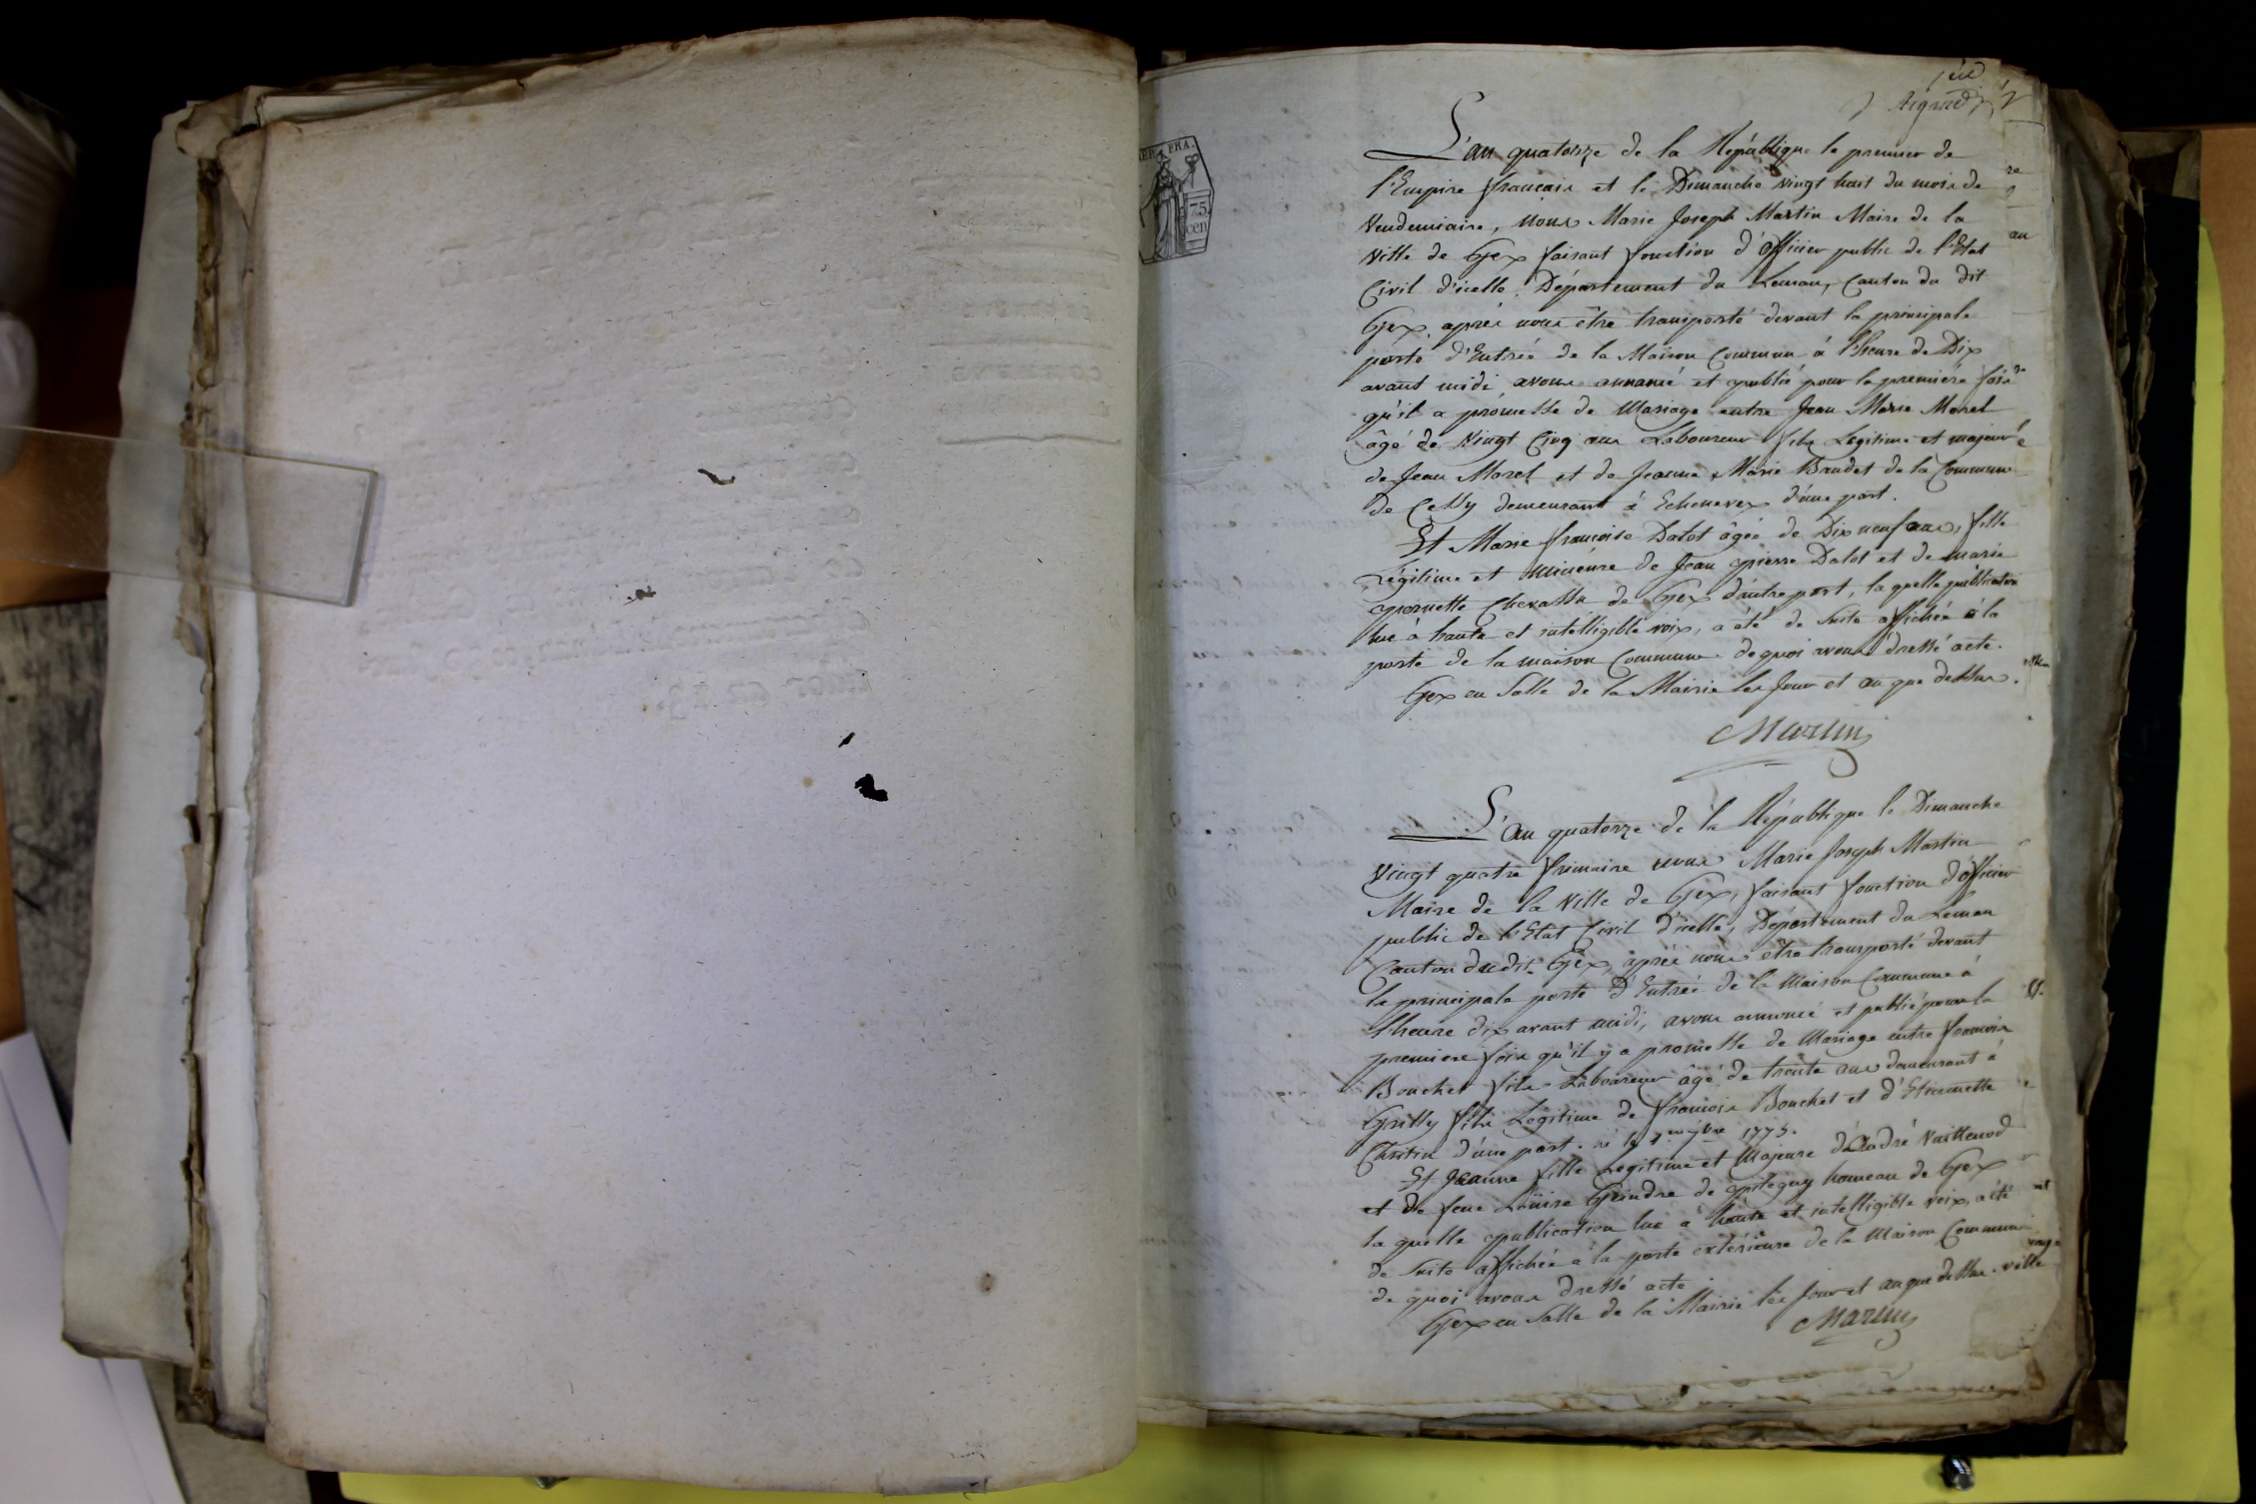 REP. FRA.
75
cen
L'an quatorze de la République le premier de
l'Empire français et le Dimanche vingt huit du mois de
Vendemiaire, Nous Marie Joseph Martin Maire de la
Ville de Gex faisant fonction d'officier public de l'Etat
Civil d'icelle, Département du Leman, Canton du dit
Gex, après nous être transporté devant la principale
porte d'Entrée de la Maison Commune à l'heure de Dix
avant midi avons annoncé et publié pour la première fois
qu'il a promesse de Mariage entre Jean Marie Morel
âgé de Vingt Cinq ans Laboureur fils Légitime et majeur
de Jean Morel et de Jeanne Marie Baudet de la Commune
de Cessy demeurant à Echenevex d'une part.
Et Marie françoise Dalot âgée de Dix neuf ans, fille
Légitime et mineure de Jean pierre Dalot et de marie
pernette Chevassu de Gex d'autre part, la quelle publication
lue à haute et intelligible voix, a été de suite affichée à la
porte de la maison Commune de quoi avons dressé acte.
Gex en Salle de la Mairie les Jour et an que dessus.
Martin
L'an quatorze de la République le Dimanche
vingt quatre frimaire nous Marie Joseph Martin
Maire de la Ville de Gex, faisant fonction d'officier
public de l'Etat Civil d'icelle, Département du Leman
Canton du dit Gex, après nous être transporté devant
la principale porte d'Entrée de la Maison Commune à
l'heure dix avant midi, avons annoncé et publié pour la
premiere fois qu'il y a promesse de Mariage entre françois
Bouchet fils Laboureur âgé de trente ans demeurant à
Grilly fils Légitime de françois Bouchet et d'Etiennette
Christin d'une part. né le 1775.
Et Jeanne fille Légitime et Majeure d'André Vuillenod
et de feue Louise Grindre de pitegny hameau de Gex
la quelle publication lue à haute et intelligible voix, a été
de suite affichée à la porte extérieure de la Maison Commune
de quoi avons dressé acte.
Gex en Salle de la Mairie les Jour et an que dessus.
Martin